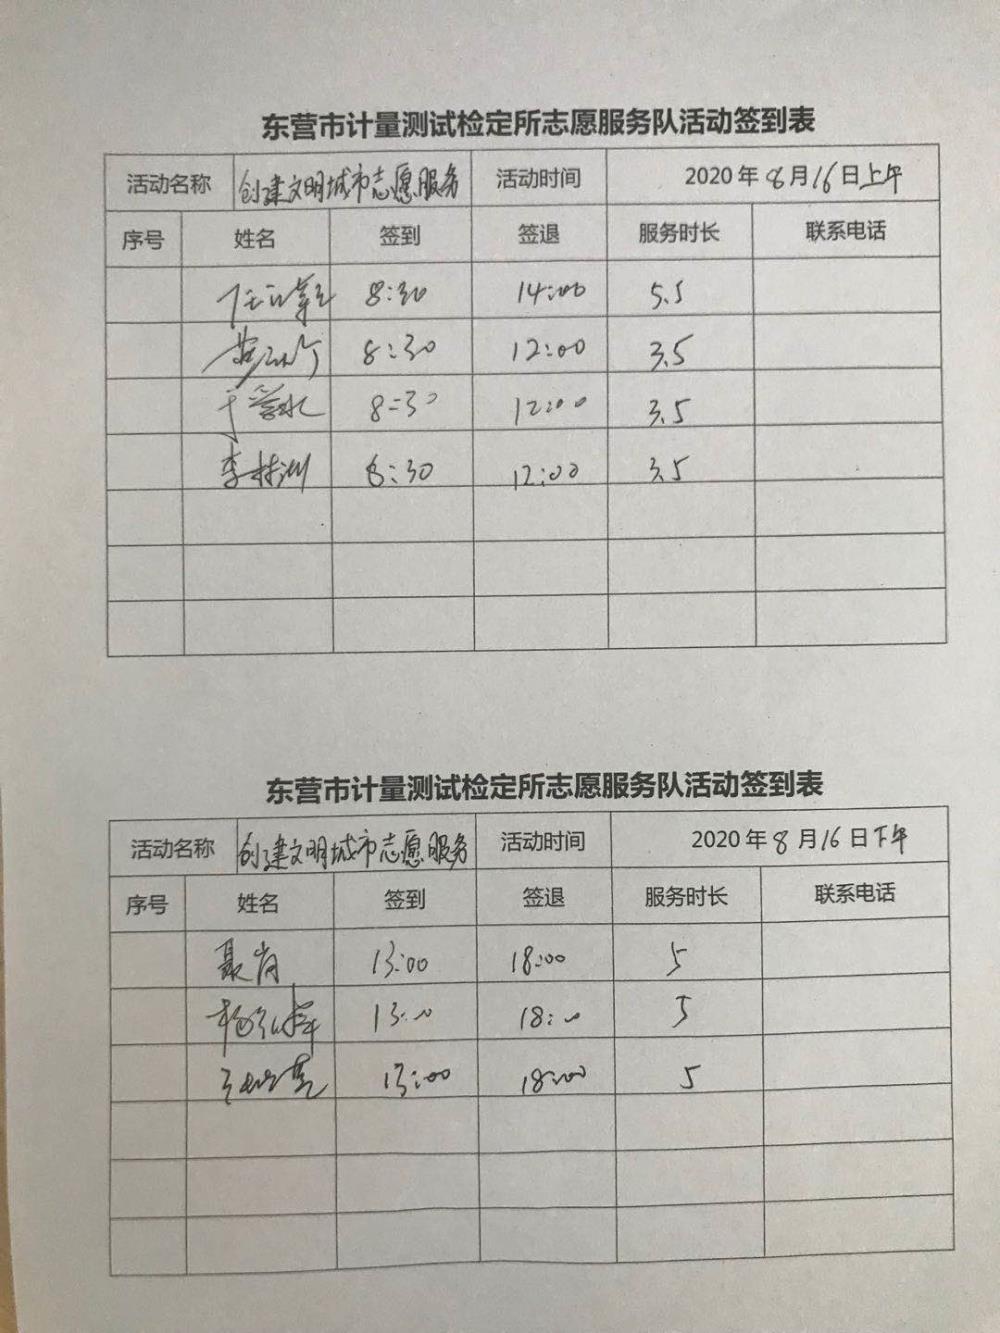 东营市计量测试检定所志愿服务队活动签到表
活动名称 创建文明城市志愿服务 活动时间 2020年8月16日上午
序号 姓名 签到 签退 服务时长 联系电话
8:30 14:00 5.5
8:30 12:00 3.5
于学水 8:30 12:00 3.5
李林洲 8:30 12:00 3.5
东营市计量测试检定所志愿服务队活动签到表
活动名称 创建文明城市志愿服务 活动时间 2020年8月16日下午
序号 姓名 签到 签退 服务时长 联系电话
聂肖 13:00 18:00 5
13:00 18:00 5
13:00 18:00 5